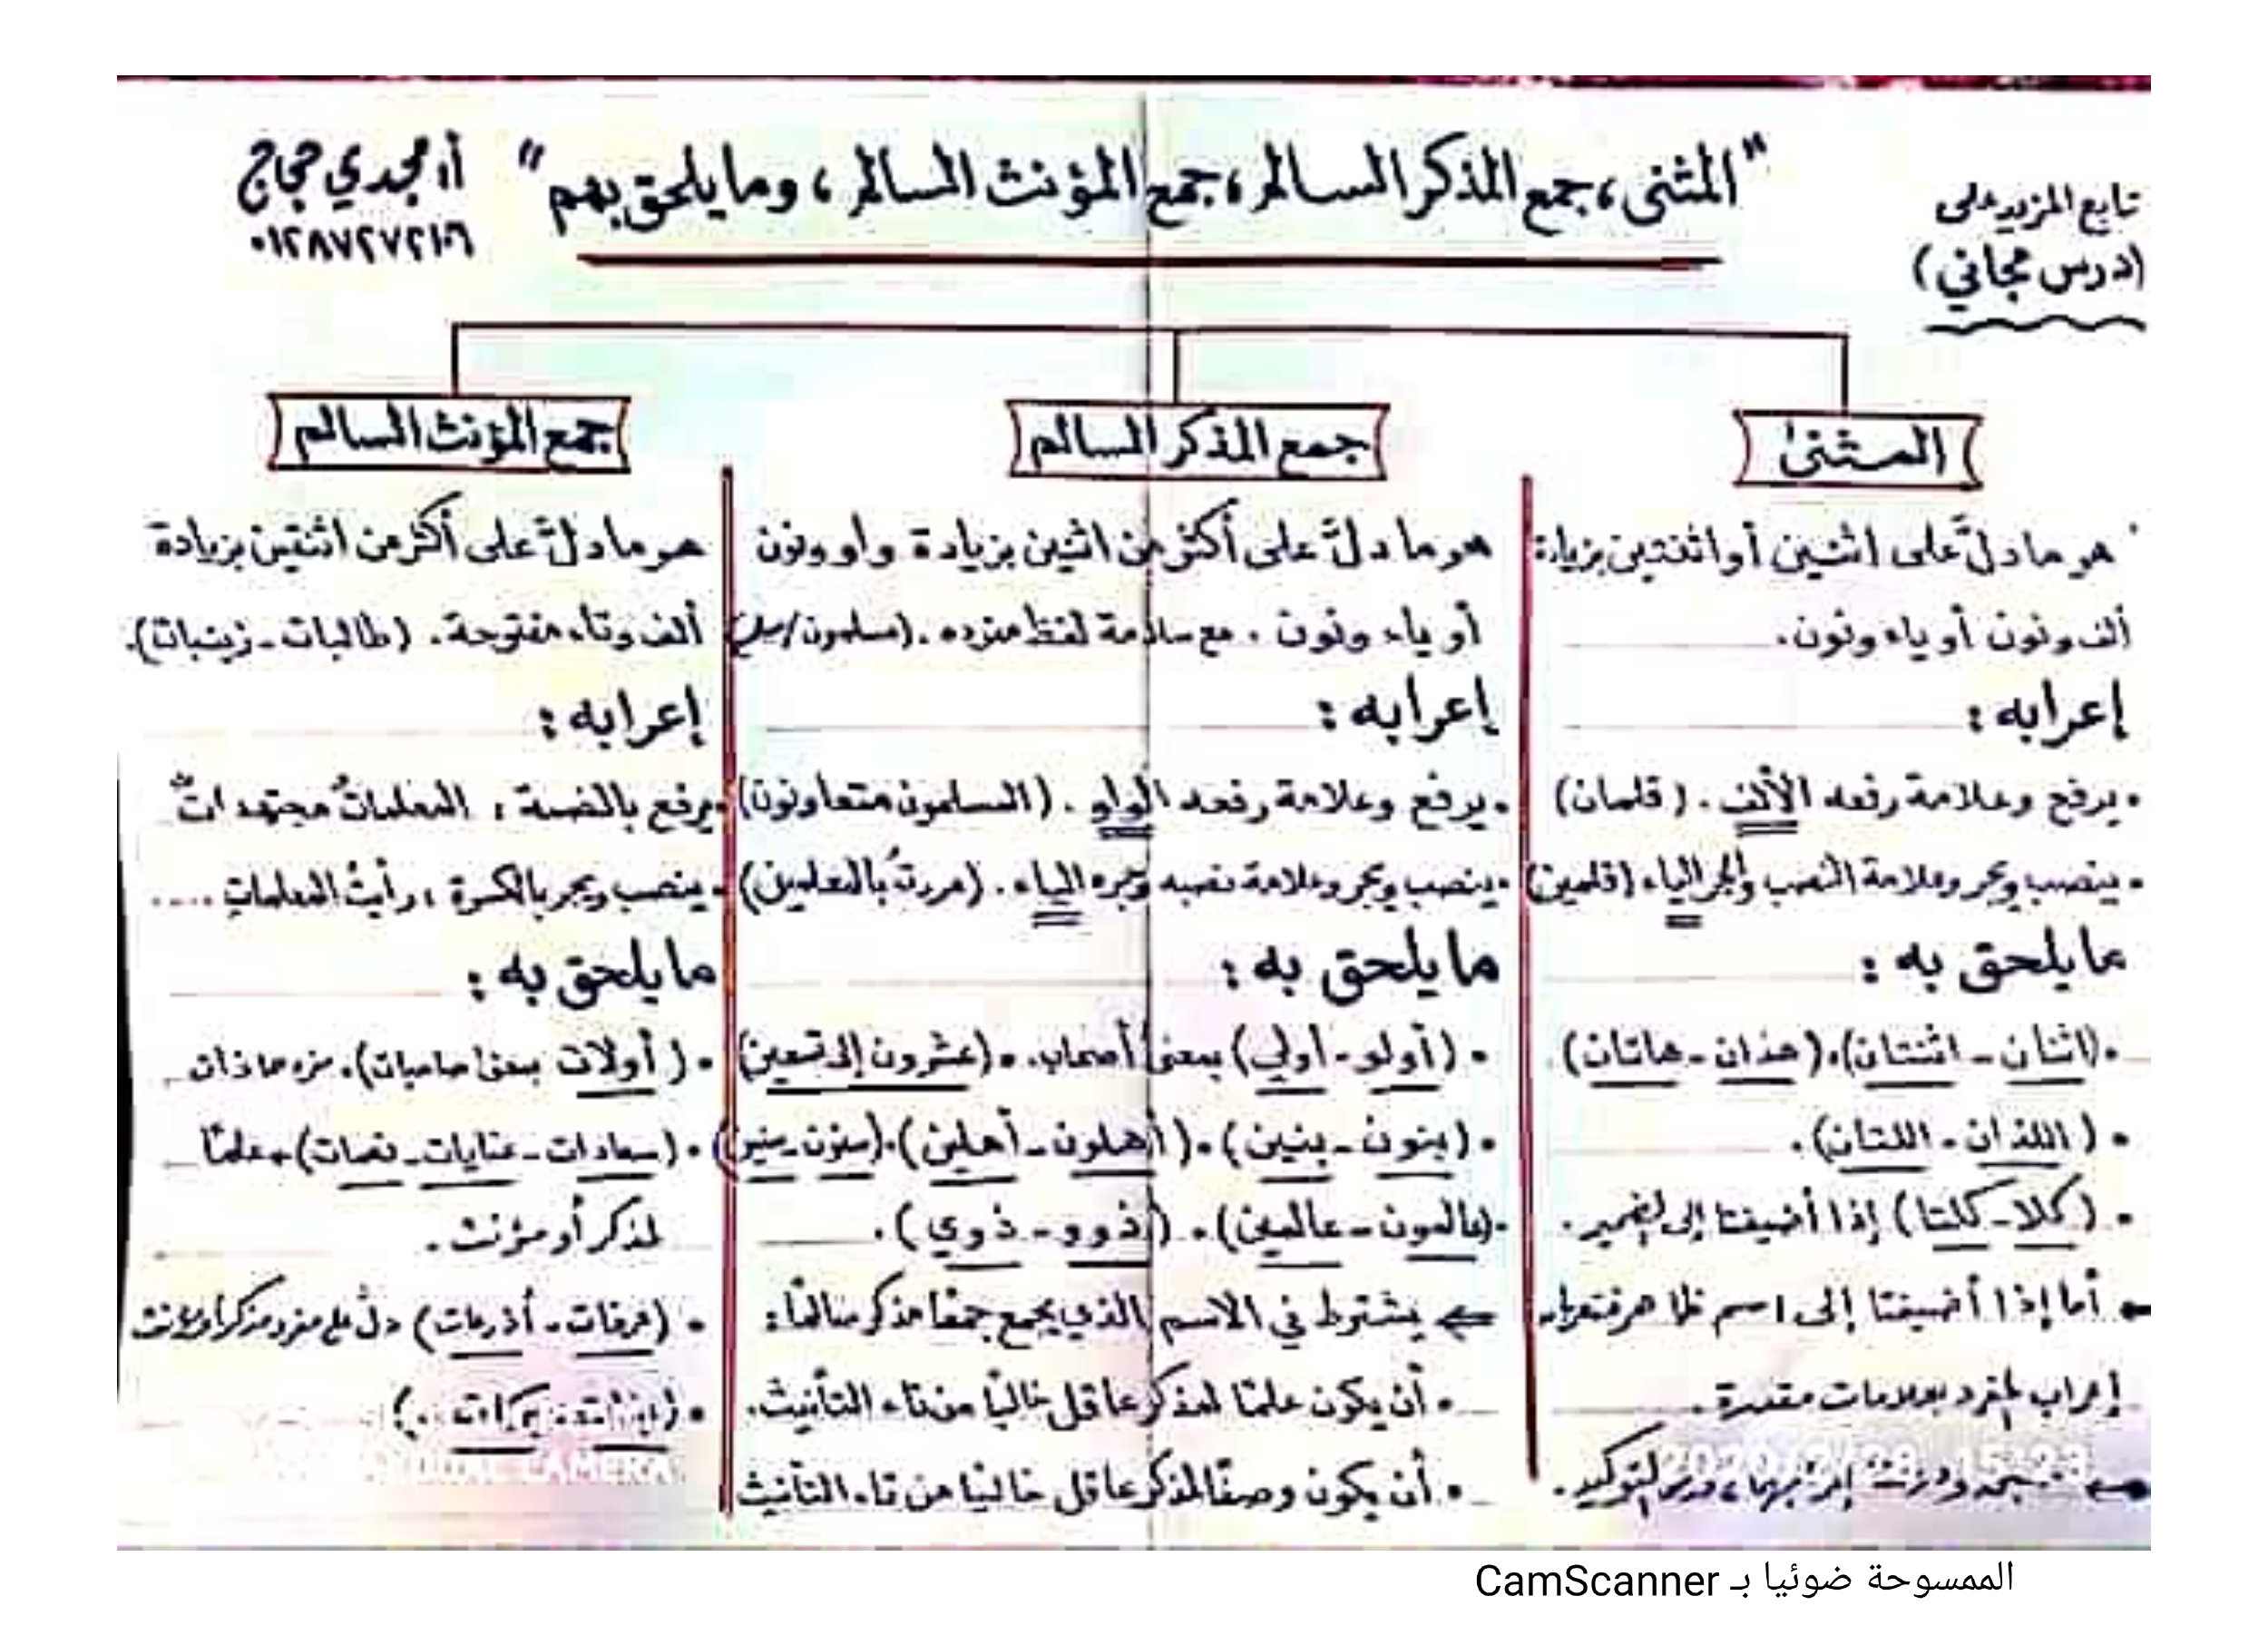 تابع المزيد على
(درس مجاني)
"المثنى، جمع المذكر السالم، جمع المؤنث السالم، وما يلحق بهم"
أ. مجدي حجاج
٠١٢٨٧٢٧٢١٠٦
المثنى
هو ما دلَّ على اثنين أو اثنتين بزيادة
ألف ونون أو ياء ونون.
إعرابه :
• يرفع وعلامة رفعه الألف. (قلمان)
• ينصب ويجر وعلامة النصب والجر الياء (قلمين)
ما يلحق به :
• (اثنان - اثنتان). (هذان - هاتان)
• (اللذان - اللتان).
• (كلا - كلتا) إذا أضيفتا إلى لضمير.
أما إذا أضيفتا إلى اسم ظاهر فتعرباه
إعراب المفرد بعلامات مقدرة.
درس التوكيد.
جمع المذكر السالم
هو ما دلَّ على أكثر من اثنين بزيادة واو ونون
أو ياء ونون. مع سلامة لفظ مفرده. (مسلمون/
إعرابه :
• يرفع وعلامة رفعه الواو. (المسلمون متعاونون)
• ينصب ويجر وعلامة نصبه وجره الياء. (مررتُ بالمعلمين)
ما يلحق به :
• (أولو - أولي) بمعنى أصحاب. • (عشرون إلى تسعين)
• (بنون - بنين). (أهلون - أهلين). (سنون - سنين)
• (عالمون - عالمين). (ذوو - ذوي).
⇐ يشترط في الاسم الذي يجمع جمعًا مذكر سالمًا:
• أن يكون علمًا لمذكر عاقل خاليًا من تاء التأنيث.
• أن يكون وصفًا لمذكر عاقل خاليًا من تاء التأنيث
جمع المؤنث السالم
هو ما دلَّ على أكثر من اثنتين بزيادة
ألف وتاء مفتوحة. (طالبات - زينبات).
إعرابه :
• يرفع بالضمة : المعلماتُ مجتهداتٌ
• ينصب ويجر بالكسرة : رأيتُ المعلماتِ ....
ما يلحق به :
• (أولات بمعنى صاحبات). مفردها ذات
• (سعادات - عنايات - نعمات) علمًا
لمذكر أو مؤنث.
• (عرفات - أذرعات) دلَّ على مفرد مذكر أو مؤنث
بركات
DUAL CAMERA
2020/2/28 15:23
الممسوحة ضوئيا بـ CamScanner